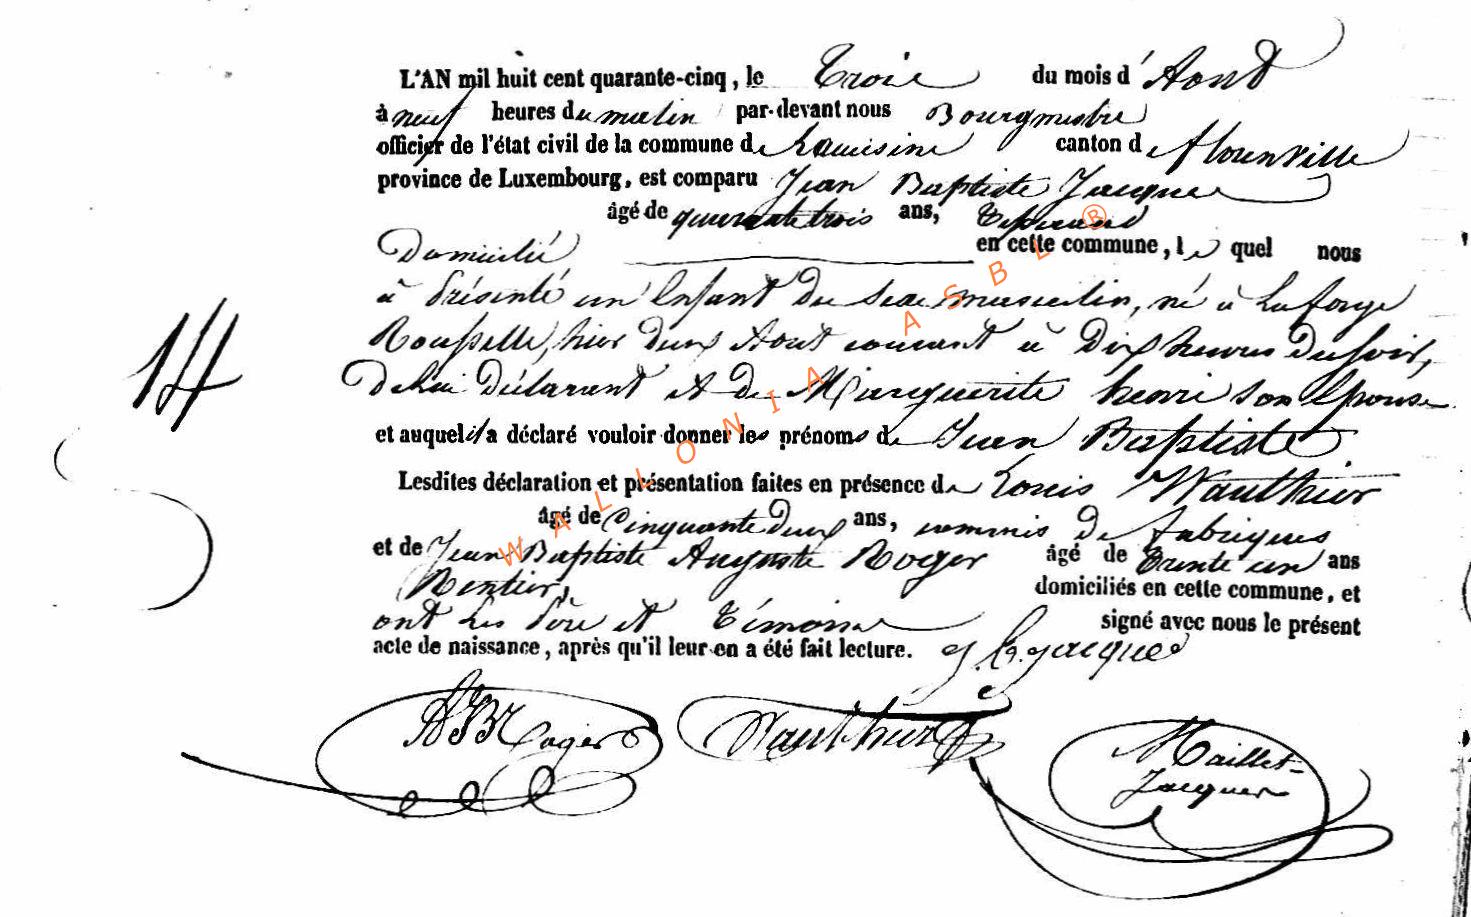 L'AN mil huit cent quarante-cinq, le Trois du mois d'Aout
à neuf heures du matin par-devant nous Bourgmestre
officier de l'état civil de la commune de Lacuisine canton de florenville
province de Luxembourg, est comparu Jean Baptiste Jacques
âgé de quarante trois ans, Tisserand
Domicilié en cette commune, le quel nous
à présenté un Enfant du sexe masculin, né à La forge
Roussel, hier deux Aout courant à Dix heures du soir,
De lui Déclarant et de Marguerite henri son Epouse
14
et auquel il a déclaré vouloir donner les prénoms de Jean Baptiste
Lesdites déclaration et présentation faites en présence de Louis Wauthier
âgé de Cinquante Deux ans, commis de fabriques
et de Jean Baptiste Auguste Roger âgé de Trente un ans
Rentier, domiciliés en cette commune, et
ont Les Père et Témoins signé avec nous le présent
acte de naissance, après qu'il leur en a été fait lecture. J. B. Jacques
ABRoger Wauthier Maillet-
Jacques
WALLONIA ASBL ®